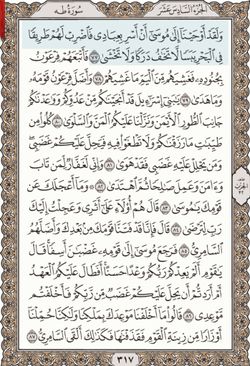 الجزء السادس عشر
سورة طه
وَلَقَدْ أَوْحَيْنَا إِلَىٰ مُوسَىٰ أَنْ أَسْرِ بِعِبَادِي فَاضْرِبْ لَهُمْ طَرِيقًا
فِي الْبَحْرِ يَبَسًا لَّا تَخَافُ دَرَكًا وَلَا تَخْشَىٰ ٧٧ فَأَتْبَعَهُمْ فِرْعَوْنُ
بِجُنُودِهِ فَغَشِيَهُم مِّنَ الْيَمِّ مَا غَشِيَهُمْ ٧٨ وَأَضَلَّ فِرْعَوْنُ قَوْمَهُ
وَمَا هَدَىٰ ٧٩ يَا بَنِي إِسْرَائِيلَ قَدْ أَنجَيْنَاكُم مِّنْ عَدُوِّكُمْ وَوَاعَدْنَاكُمْ
جَانِبَ الطُّورِ الْأَيْمَنَ وَنَزَّلْنَا عَلَيْكُمُ الْمَنَّ وَالسَّلْوَىٰ ٨٠ كُلُوا مِن
طَيِّبَاتِ مَا رَزَقْنَاكُمْ وَلَا تَطْغَوْا فِيهِ فَيَحِلَّ عَلَيْكُمْ غَضَبِي
وَمَن يَحْلِلْ عَلَيْهِ غَضَبِي فَقَدْ هَوَىٰ ٨١ وَإِنِّي لَغَفَّارٌ لِّمَن تَابَ
وَآمَنَ وَعَمِلَ صَالِحًا ثُمَّ اهْتَدَىٰ ٨٢ وَمَا أَعْجَلَكَ عَن
قَوْمِكَ يَا مُوسَىٰ ٨٣ قَالَ هُمْ أُولَاءِ عَلَىٰ أَثَرِي وَعَجِلْتُ إِلَيْكَ
رَبِّ لِتَرْضَىٰ ٨٤ قَالَ فَإِنَّا قَدْ فَتَنَّا قَوْمَكَ مِن بَعْدِكَ وَأَضَلَّهُمُ
السَّامِرِيُّ ٨٥ فَرَجَعَ مُوسَىٰ إِلَىٰ قَوْمِهِ غَضْبَانَ أَسِفًا قَالَ
يَا قَوْمِ أَلَمْ يَعِدْكُمْ رَبُّكُمْ وَعْدًا حَسَنًا أَفَطَالَ عَلَيْكُمُ الْعَهْدُ
أَمْ أَرَدتُّمْ أَن يَحِلَّ عَلَيْكُمْ غَضَبٌ مِّن رَّبِّكُمْ فَأَخْلَفْتُم
مَّوْعِدِي ٨٦ قَالُوا مَا أَخْلَفْنَا مَوْعِدَكَ بِمَلْكِنَا وَلَٰكِنَّا حُمِّلْنَا
أَوْزَارًا مِّن زِينَةِ الْقَوْمِ فَقَذَفْنَاهَا فَكَذَٰلِكَ أَلْقَى السَّامِرِيُّ ٨٧
٣١٧